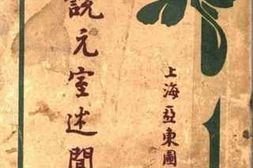 說元室述聞
上海亞東圖